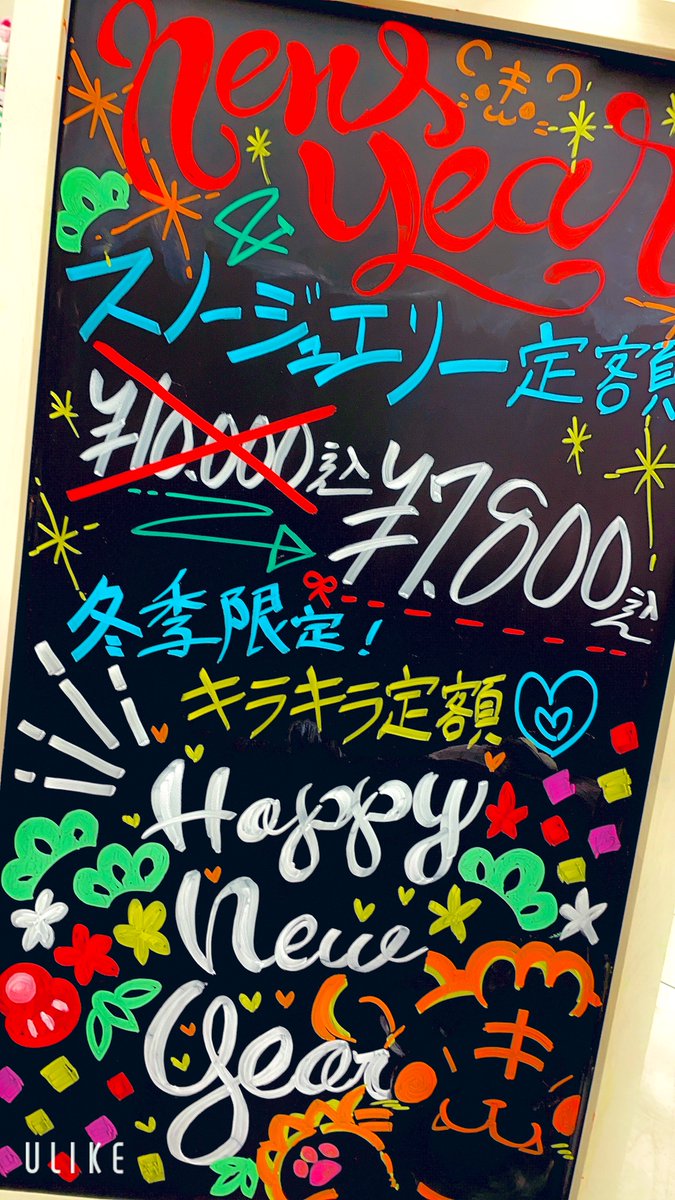 new
year
&
スノージュエリー定額
¥10.000込
¥7.800込
冬季限定!
キラキラ定額
Happy
New
Year
ULIKE